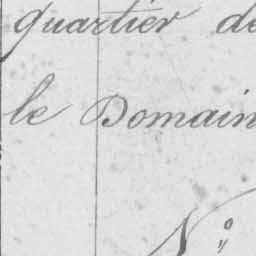 quartier de
le Domain
No